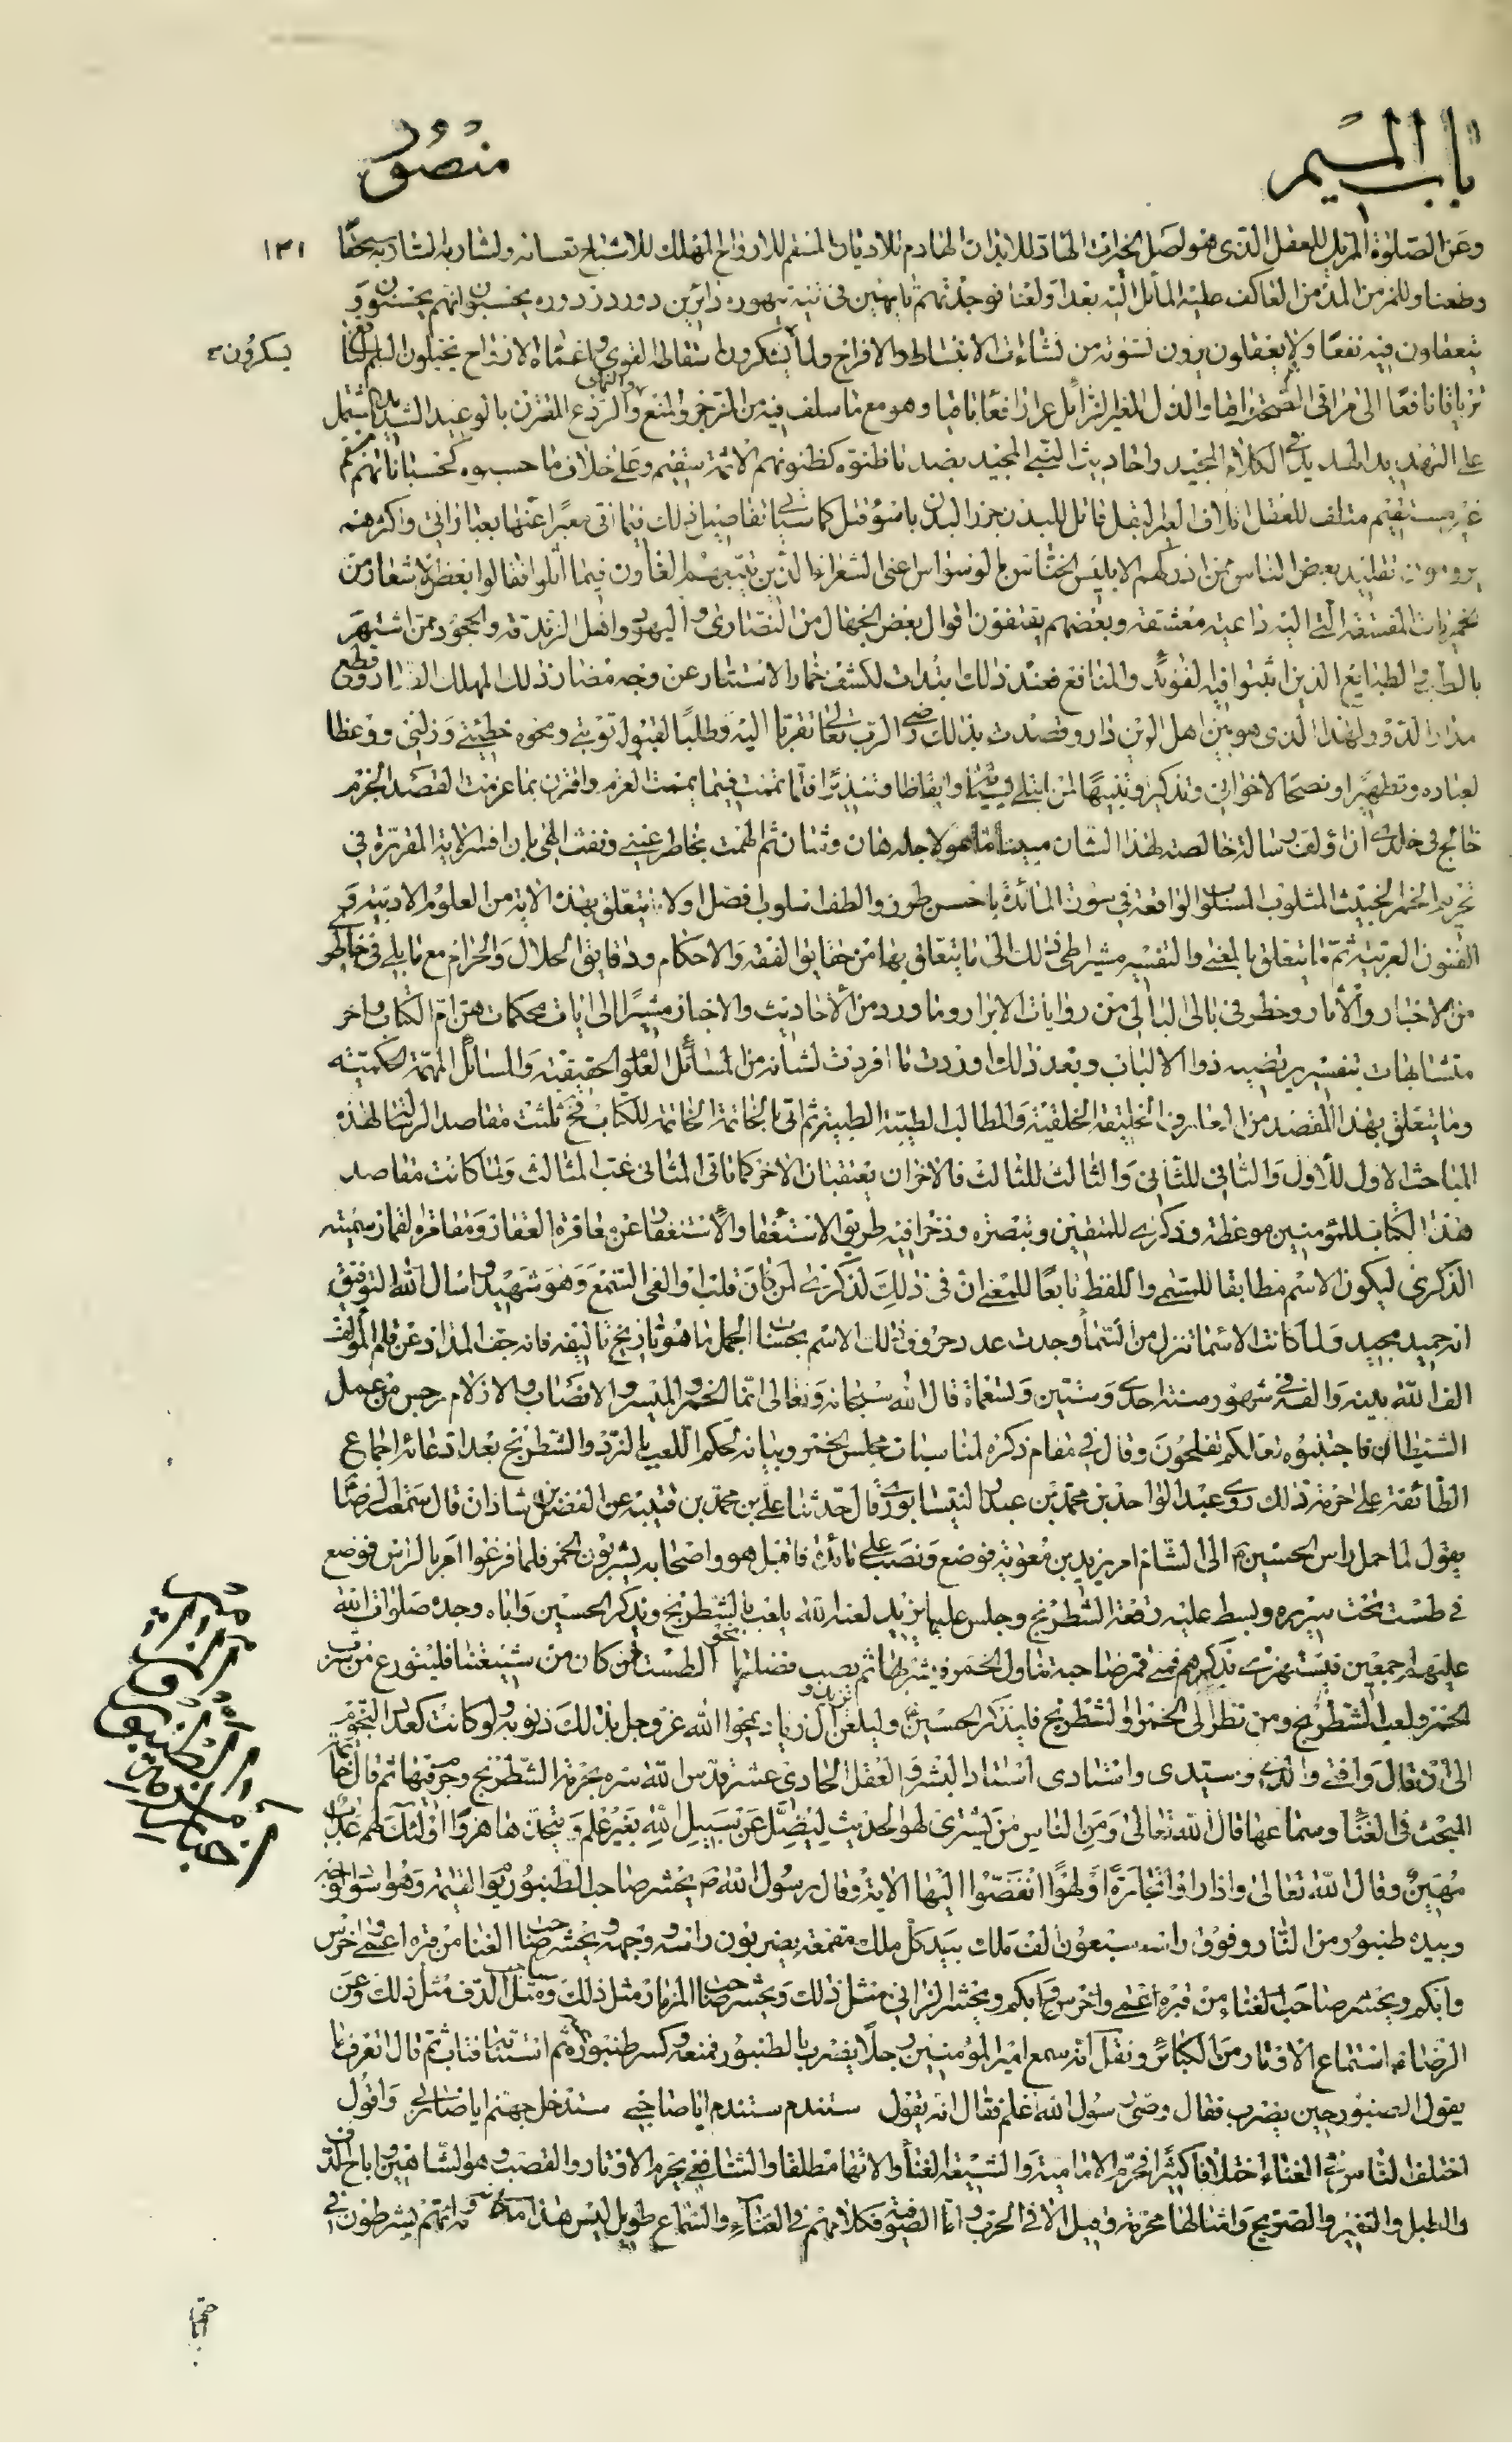 باب الميم
منصور
وعن الصلوة المزيل للعقل الذى هو لصل الخيرات الهادّ للابدان الهادم للاديان المسقم للارواح المهلك للاشباح تعسا له ولشاربه الشاذ به سحقا ١٣١
وطعنا وللمزمن المدمن العاكف عليه المائل اليه بعدا ولعنا فوجدتهم تايهين فى تيه تهوره زائرين دور زوره يحسبون انهم يحسنون و
يتعقلون فيه نفعا ولا يعقلون يرون نشوته من نشاءات الانبساط والافراح ولما يشكرون اسقاط القوى واغماء الارواح يتخيلون السم الناقع يسكرون
ترياقا نافعا الى مراقى الصحة راقيا والذل المغير عزا رافعا باقيا وهو مع ما سلف فيه من الزجر والمنع والنهى والردع المقترن بالوعيد الشديد المشتمل
على التهديد المديد فى الكلام المجيد واحاديث النبى المجيد بضد ما ظنوه كظنونهم الاثمة سقيم وعلى خلاف ما حسبوه كحسباناتهم سقيم
غير مستقيم متلف للعقل قاتل للبدن كما سياتى تفاصيل ذلك فيما اتى معبرا عنها بعباراتى واكثرهم
يرومون تقليد بعض الناس ممن ادركهم الابليس الخناس بالوسواس اعنى الشعراء الذين يتبعهم الغاون فيما قالوا بعض الاشعار من
خمريات المفسقة التى اليه داعية معشقة وبعضهم يقتفون اقوال بعض الجهال من النصارى واليهود واهل الزندقة والجحود ممن اشتهر
بالطب والطبايع الذين اثبتوا فيه الفوائد والمنافع فعند ذلك ابتدات لكشف خمار الاستتار عن وجه مضار ذلك المهلك الضار وقطع
مدار الدور ولهذا الذى هو بين اهل الدين دار وقصدت بذلك رضى الرب تعالى تقربا اليه وطلبا لقبول توبتى ومحوه خطيئتى وزلتى ووعظا
لعباده وتطهيرا ونصحا لاخوانى وتذكيرا وتنبيها لمن ابتلى وايقاظا وتنذيرا فلما تممت فيما يممت العزم واقترن بما عزمت القصد الجزم
خالج فى خلدى ان اؤلف رسالة خالصة لهذا الشان مبينا ما هو لاجله هان وشان ثم الهمت بخاطر غيبى ونفث الهى بان افسر الاية المقررة فى
تحريم الخمر الخبيث المثلوب المسلوب الواقعة فى سورة المائدة باحسن طور والطف اسلوب افصل اولا ما يتعلق بهذه الاية من العلوم الادبية و
الفنون العربية ثم ما يتعلق بالمعنى والتفسير مشيرا طى ذلك الى ما يتعلق بها من حقايق الفقه والاحكام ودقايق الحلال والحرام مع ما يلى فى خاطر
من الاخبار والاثار وخطر فى بالى البالى من روايات الابرار وما ورد من الاحاديث والاخبار مشيرا الى ايات محكمات هن ام الكتاب واخر
متشابهات بتفسير يرتضيه ذوا الالباب وبعد ذلك اوردت ما افردت لشانه من المسائل العلوم الحقيقية والمسائل المهمة الحكمية
وما يتعلق بهذا المقصد من المعارف الخليقة الخلقية والمطالب الطيبة الطبية ثم اتى بالخاتمة الخاتمة للكتاب فح ثلثت مقاصد الرسالة لهذه
المباحث الاول للاول والثانى للثانى والثالث للثالث فالاخران يعتقبان الاخر كما تاتى المثانى غب المثالث ولما كانت مقاصد
هذا الكتاب للمؤمنين موعظة وذكرى للمتقين وتبصرة وذخرا فيه طريق الاستغفار والاستعفاء عن معاقرة العقار ومقامرة القمار سميته
الذكرى ليكون الاسم مطابقا للمسمى واللفظ تابعا للمعنى ان فى ذلك لذكرى لمن كان له قلب او القى السمع وهو شهيد واسال الله التوفيق
انه حميد مجيد ولما كانت الاسماء تنزل من السماء وجدت عدد حروف ذلك الاسم بحساب الجمل ما هو تاريخ تاليفه فانه جف المداد عن قلم المؤلف
الف الله بينه والفه فى شهور سنة احدى وستين وتسعماة قال الله سبحانه وتعالى انما الخمر والميسر والانصاب والازلام رجس من عمل
الشيطان فاجتنبوه لعلكم تفلحون وقال فى مقام ذكره لمناسبات مجلس الخمر وبيانه لحكم اللعب بالنرد والشطرنج بعد ادعائه اجماع
الطائفة على حرمة ذلك روى عبد الواحد بن محمد بن عبدوس النيسابورى قال حدثنا على بن محمد بن قتيبة عن الفضل بن شاذان قال سمعت الرضا
يقول لما حمل راس الحسين الى الشام امر يزيد بن معوية فوضع ونصب عليه مائدة فاقبل هو واصحابه يشربون الخمر فلما فرغوا امر بالراس فوضع
فى طست تحت سريره وبسط عليه رقعة الشطرنج وجلس عليها يزيد لعنه الله يلعب بالشطرنج ويذكر الحسين واباه وجده صلوات الله
عليهم اجمعين فيستهزى بذكرهم فمتى قمر صاحبه تناول الخمر فيشربها ثم يصب فضلتها نحو الطست فمن كان من شيعتنا فليتورع من شرب
الخمر ولعب الشطرنج ومن نظر الى الخمر او الشطرنج فليذكر الحسين وليلعن يزيد وال زياد يمحوا الله عز وجل بذلك ذنوبه ولو كانت كعدد النجوم
الى ان قال وافتى والدى وسيدى واستادى استاد البشر والعقل الحادى عشر قدس الله سره بحرمة الشطرنج ثم قال خاتمة
المبحث فى الغناء وسماعها قال الله تعالى ومن الناس من يشترى لهو الحديث ليضل عن سبيل الله بغير علم ويتخذها هزوا اولئك لهم عذاب
مهين وقال الله تعالى واذا راوا تجارة او لهوا انفضوا اليها الاية وقال رسول الله يحشر صاحب الطنبور يوم القيمة وهو اسود الوجه
وبيده طنبور من النار وفوق راسه سبعون الف ملك بيد كل ملك مقمعة يضربون راسه ووجهه ويحشر صاحب الغنا من قبره اعمى واخرس
وابكم ويحشر صاحب الغناء من قبره اعمى واخرس وابكم ويحشر الزانى مثل ذلك ويحشر صاحب المزمار مثل ذلك وصاحب الدف مثل ذلك وعن
الرضا استماع الاوتار من الكبائر ونقل انه سمع امير المؤمنين رجلا يضرب بالطنبور فمنعه وكسر طنبوره ثم استتابه فتاب ثم قال اتعرف ما
يقول الطنبور حين يضرب فقال وصى رسول الله اعلم فقال انه يقول ستندم ستندم ايا صاحبى ستدخل جهنم ايا ضاربى واقول
اختلف الناس فى الغناء اختلافا كثيرا فحرم الامامية والشيعة الغناء والاتها مطلقا والشافعى يحرم الاوتار والقصب وهو الشاهين واباح الدف
والطبل والنفير والصريح وامثالها محرمة وقيل الا فى الحرب واما الصوفية فكلامهم فى الغناء والسماع طويل ليس هذا محله وانهم يشرطون فى